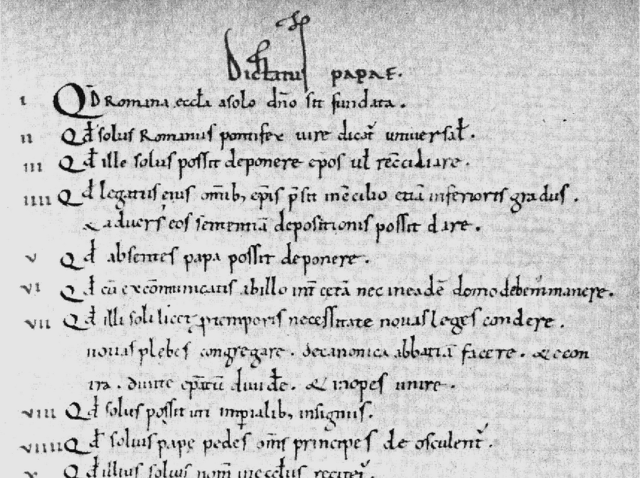 Dictatus papae.
I Qd Romana eccła a solo dño sit fundata.
II Qd solus Romanus pontifex iure dicat᷑ uniuersał.
III Qd ille solus possit deponere ep̃os uł recc̃iliare.
IIII Qd legatus eius om̃ib; ep̃is p̃sit in c̃cilio etiã inferioris gradus.
& aduersꝰ eos sententiã depositionis possit dare.
V Qd absentes papa possit deponere.
VI Qd cũ excõmunicatis ab illo int̃ cetã nec in eadẽ domo debem᷑ manere.
VII Qd illi soli licet p temporis necessitate nouas leges condere.
nouas plebes congregare. de canonica abbatiã facere. & e con
tra. diuite ep̃atũ diuidẽ. & inopes unire.
VIII Qd solus possit uti imp̃ialib; insigniis.
VIIII Qd solius papę pedes om̃s principes deosculent᷑.
X Qd illius solius nom̃ in ecclẽis recitet᷑.